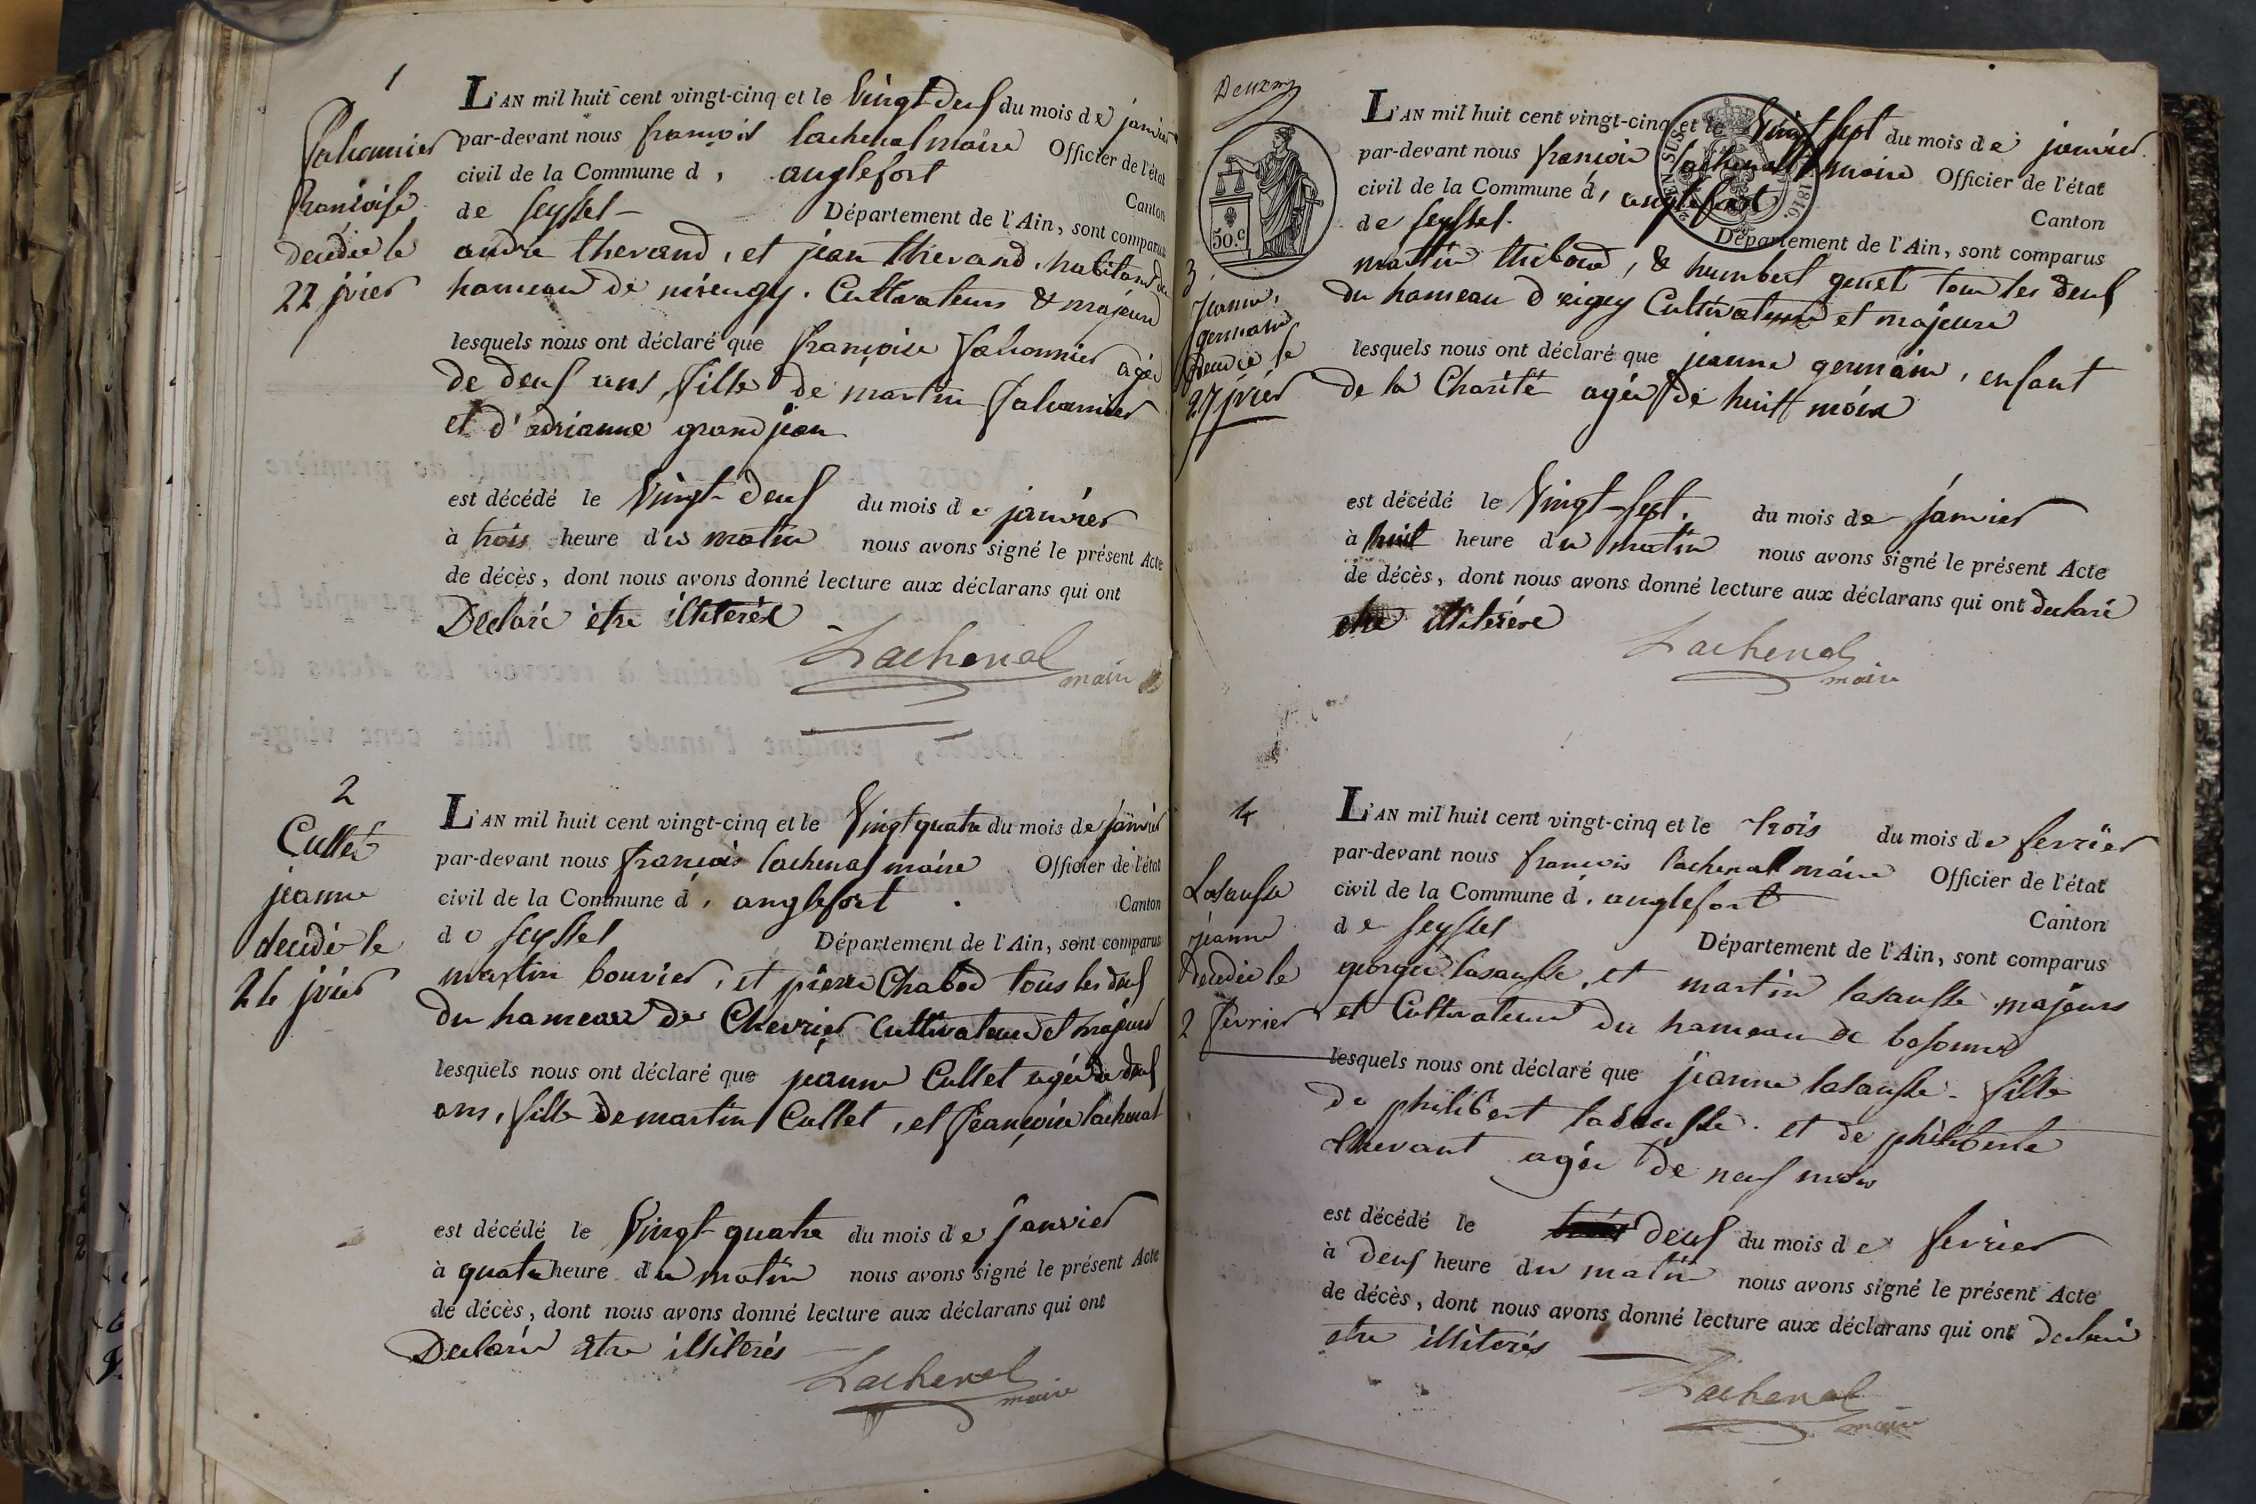 1
françoise
decedée le
22 jvier
L'AN mil huit cent vingt-cinq et le vingt deux du mois de janvier
par-devant nous françois lachenal maire Officier de l'état
civil de la Commune d, anglefort Canton
de seyssel Département de l'Ain, sont comparus
andre thevand, et jean thevand, habitans du
hameau de mirengy. Cultivateurs & majeurs
lesquels nous ont déclaré que françoise agée
de deux ans, fille de martin
et d'adrianne grandjean
est décédé le vingt-deux du mois de janvier
à trois heure du matin nous avons signé le présent Acte
de décès, dont nous avons donné lecture aux déclarans qui ont
Declaré être illiterés
Lachenal
maire
2
Cullet
jeanne
decédé le
24 jvier
L'AN mil huit cent vingt-cinq et le vingt quatre du mois de janvier
par-devant nous françois lachenal maire Officier de l'état
civil de la Commune d, anglefort. Canton
de seyssel Département de l'Ain, sont comparus
martin bouvier, et pierre Chabod tous les deux
du hameau de Chevrier Cultivateurs et majeurs
lesquels nous ont déclaré que jeanne Cullet agée de deux
ans, fille de martin Cullet, et françoise lachenal
est décédé le vingt-quatre du mois de janvier
à quatre heure du matin nous avons signé le présent Acte
de décès, dont nous avons donné lecture aux déclarans qui ont
Declaré être illiterés
Lachenal
maire
50.c
1816.
3
jeanne,
germain
decedée le
27 jvier
L'AN mil huit cent vingt-cinq et le vingt sept du mois de janvier
par-devant nous françois lachenal maire Officier de l'état
civil de la Commune d, anglefort Canton
de seyssel. Département de l'Ain, sont comparus
martin thiboud, & humbert genet tous les deux
du hameau d'eigey Cultivateurs et majeurs
lesquels nous ont déclaré que jeanne germain, enfant
de la Charité agée de huit mois
est décédé le vingt-sept. du mois de janvier
à huit heure du matin nous avons signé le présent Acte
de décès, dont nous avons donné lecture aux déclarans qui ont declaré
etre illiterés
Lachenal
maire
4
Lasausse
jeanne
decedée le
2 fevrier
L'AN mil huit cent vingt-cinq et le trois du mois de fevrier
par-devant nous francois lachenal maire Officier de l'état
civil de la Commune d, anglefort Canton
de seyssel Département de l'Ain, sont comparus
george lasausse, et martin lasausse majeurs
et Cultivateurs du hameau de bosonnet
lesquels nous ont déclaré que jeanne lasausse fille
de philibert lasausse. et de philiberte
thevant agée de neuf mois
est décédé le deux du mois de fevrier
à deux heure du matin nous avons signé le présent Acte
de décès, dont nous avons donné lecture aux déclarans qui ont declaré
etre illiterés
Lachenal
maire